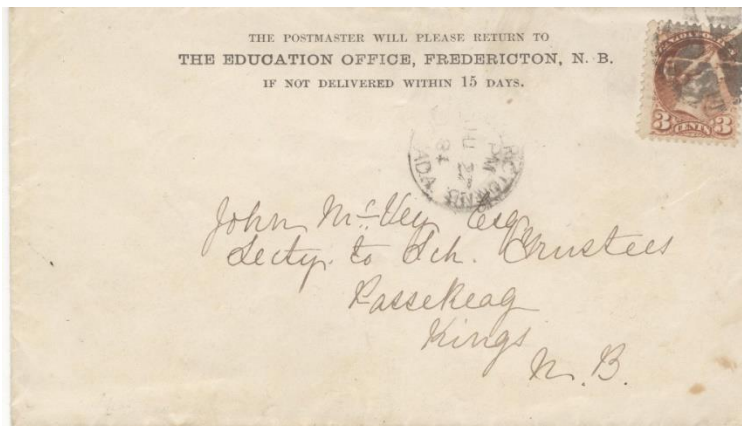 THE POSTMASTER WILL PLEASE RETURN TO
THE EDUCATION OFFICE, FREDERICTON, N. B.
IF NOT DELIVERED WITHIN 15 DAYS.
3 CENTS 3
PM
JU 27
84
ADA
John McVey Esq
Secty. to Sch. Trustees
Passekeag
Kings
N. B.